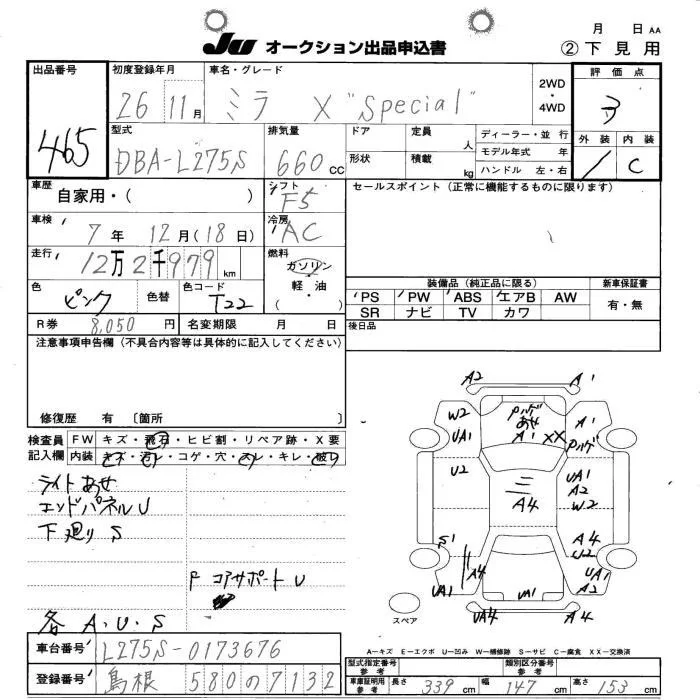 月 日 AA
JU オークション出品申込書 ②下見用
出品番号 465
初度登録年月 26 11月
車名・グレード ミラ X "Special"
2WD・4WD
評価点 3
外装 内装 C
型式 DBA-L275S
排気量 660 cc
ドア 定員 人
形状 積載 kg
ディーラー・並行
モデル年式 年
ハンドル 左・右
車歴 自家用・( )
シフト F5
セールスポイント (正常に機能するものに限ります)
車検 7年 12月(18日)
冷房 AC
走行 12万2千979 km
燃料 ガソリン・軽油・( )
色 ピンク 色替 色コード T22
装備品 (純正品に限る) 新車保証書
PS PW ABS エアB AW 有・無
SR ナビ TV カワ
R券 8,050円 名変期限 月 日
後日品
注意事項申告欄 (不具合内容等は具体的に記入してください)
修復歴 有 〔箇所 〕
検査員記入欄 FW キズ・飛石・ヒビ割・リペア跡・X要
内装 キズ・汚レ・コゲ・穴・スレ・キレ・破レ
ライトあせ
エンドパネルU
下廻りS
FコアサポートU
各A・U・S
A2 A1
W2 UA1
Pハゲ あせ A1 XX
A1 Pハゲ
U2
三 A4
UA1 A2 W2
S1 A4 UA1
A4 U2 UA1 A2
UA1
UA4 A4
スペア
A-キズ E-エクボ U-凹み W-補修跡 S-サビ C-腐食 XX-交換済
車台番号 L275S-0173676
登録番号 島根 580の7132
型式指定番号 参考 類別区分番号 参考
車庫証明用 参考 長さ 339cm 幅 147cm 高さ 153cm